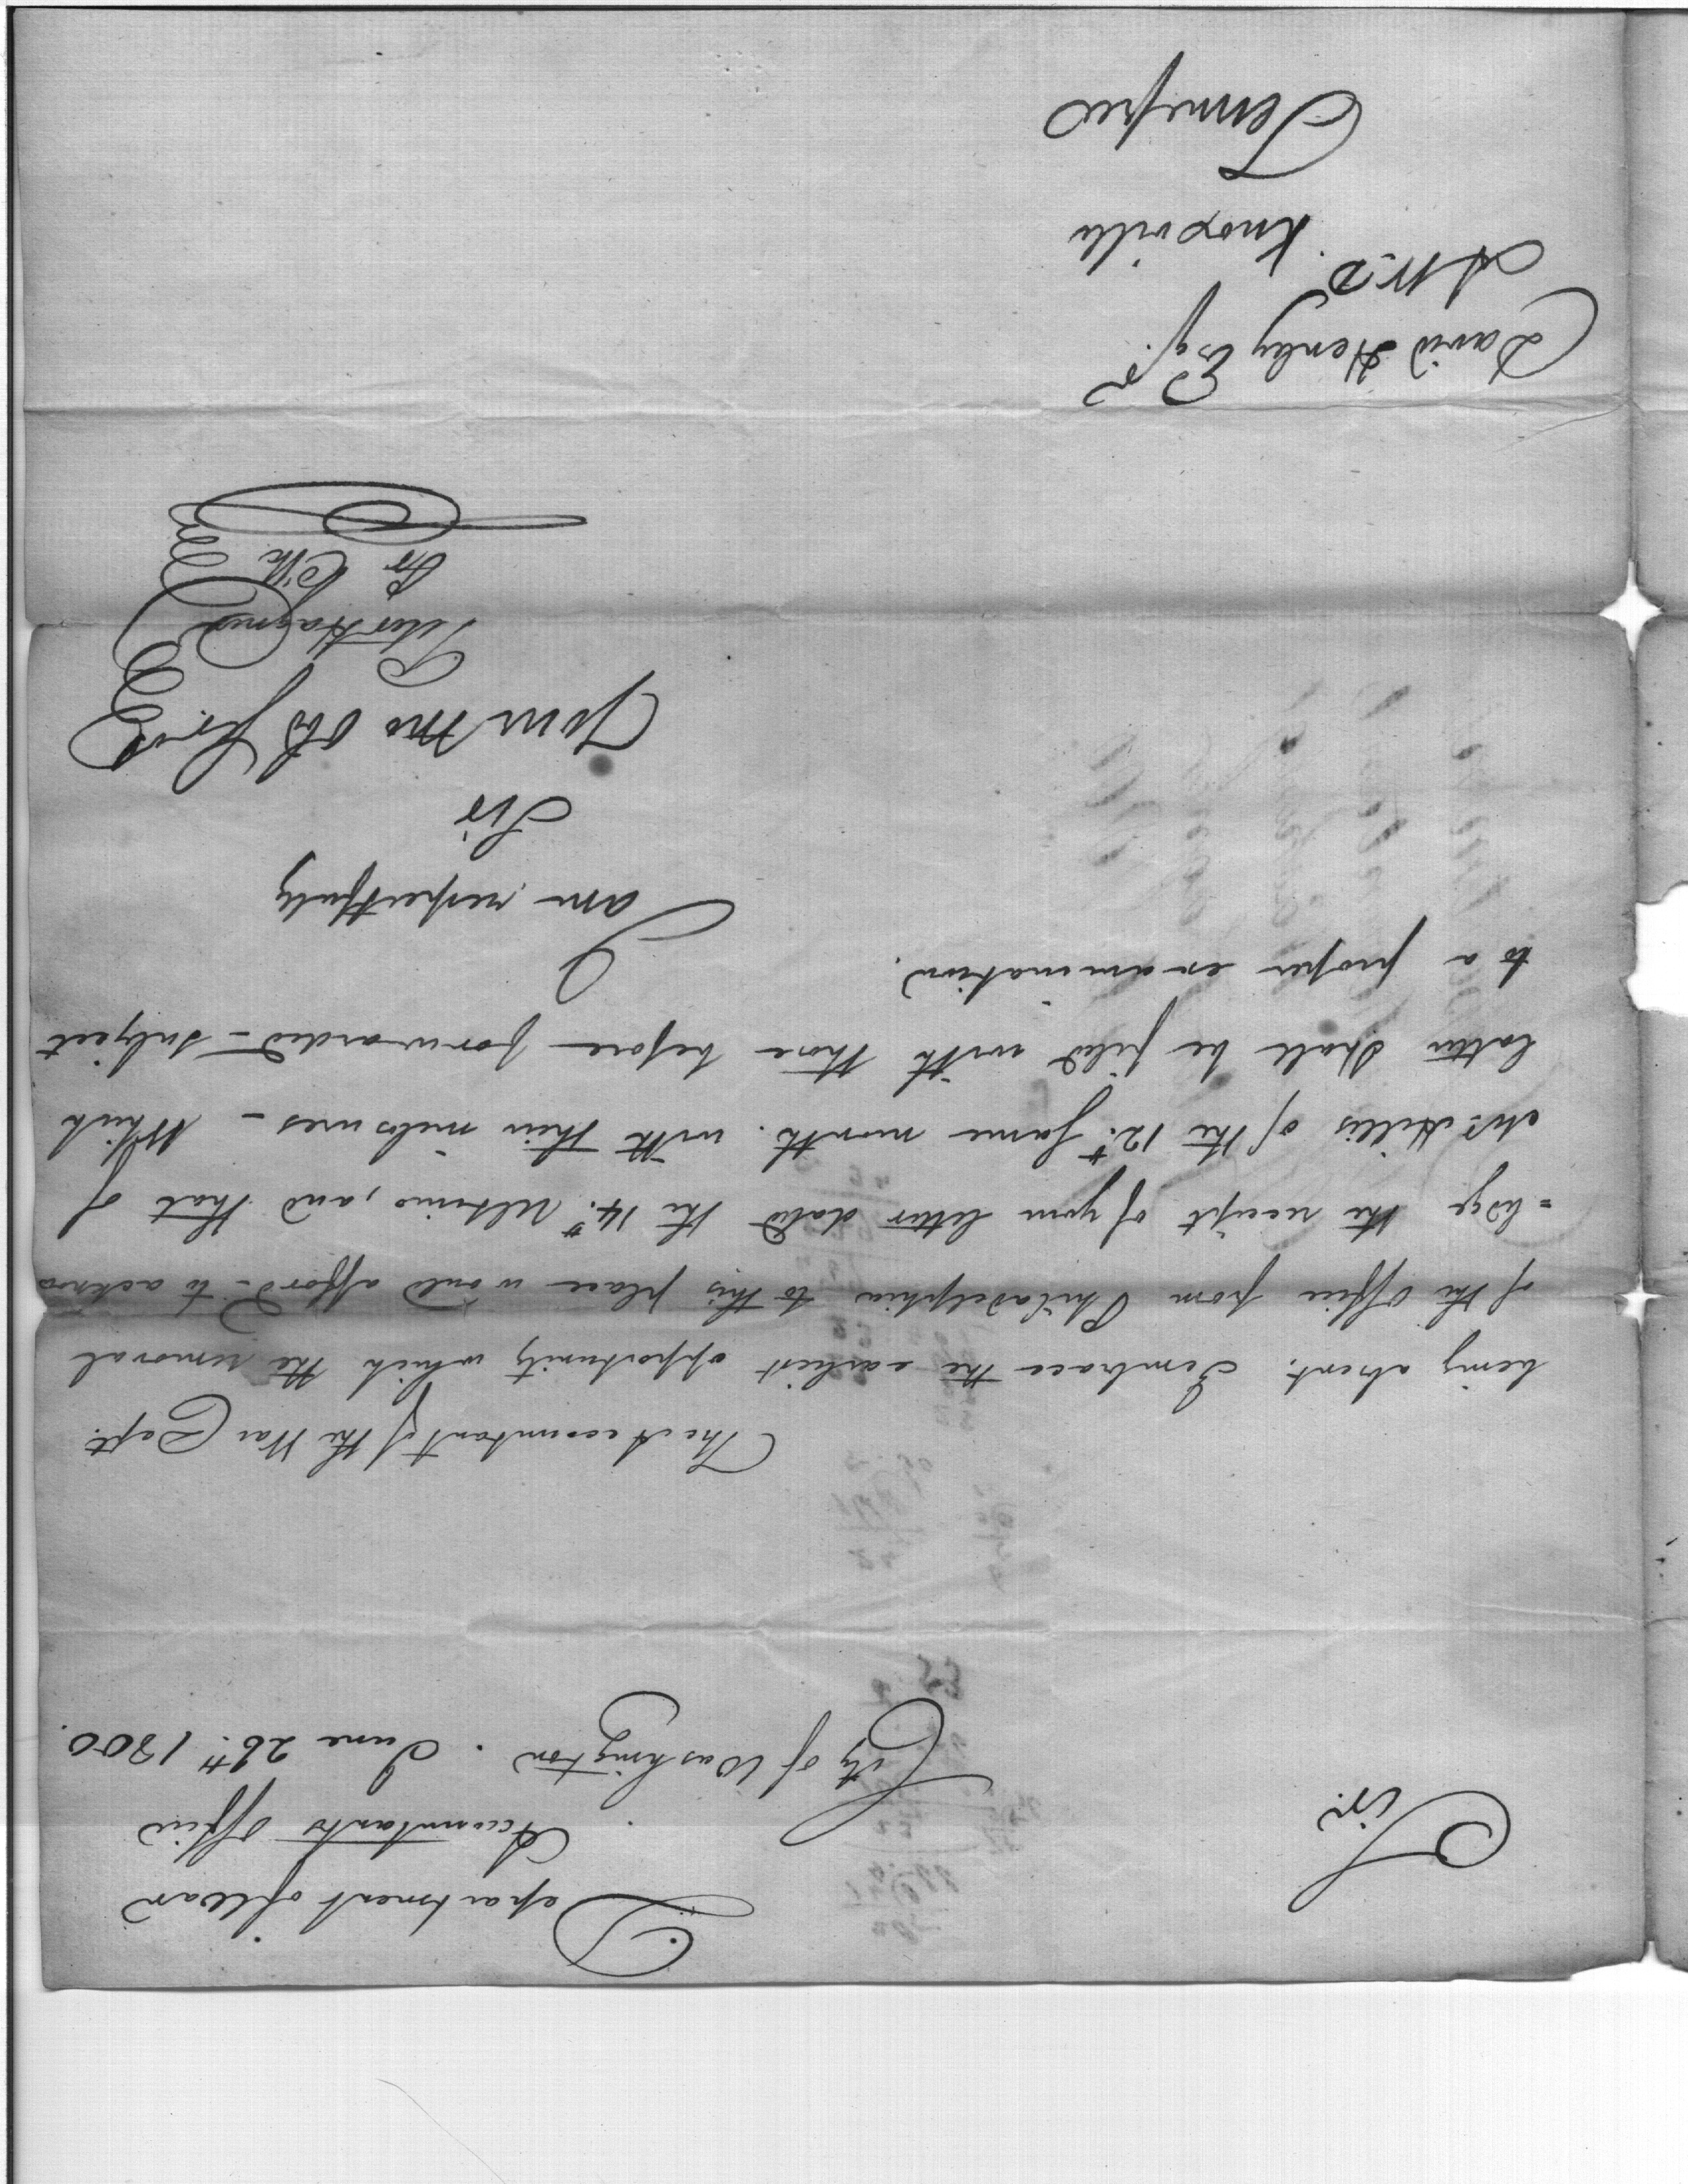 Department of War
Accountants Office
City of Washington. June 28th. 1800.
Sir.
The Accountant of the War Dept.
being absent. I embrace the earliest opportunity which the removal
of the Office from Philadelphia to this place would afford - to acknow
=ledge the receipt of your letter dated the 14th. Ultimo, and that of
Mr. Hillis of the 12th. same month. with their inclosures - Which
latter shall be filed with those before forwarded - subject
to a proper examination.
I am respectfully
Sir
Your Mo Obt Servt
Peter Hagner
Pr Clk
David Henley Esqr.
A W.D. Knoxville
Tennessee